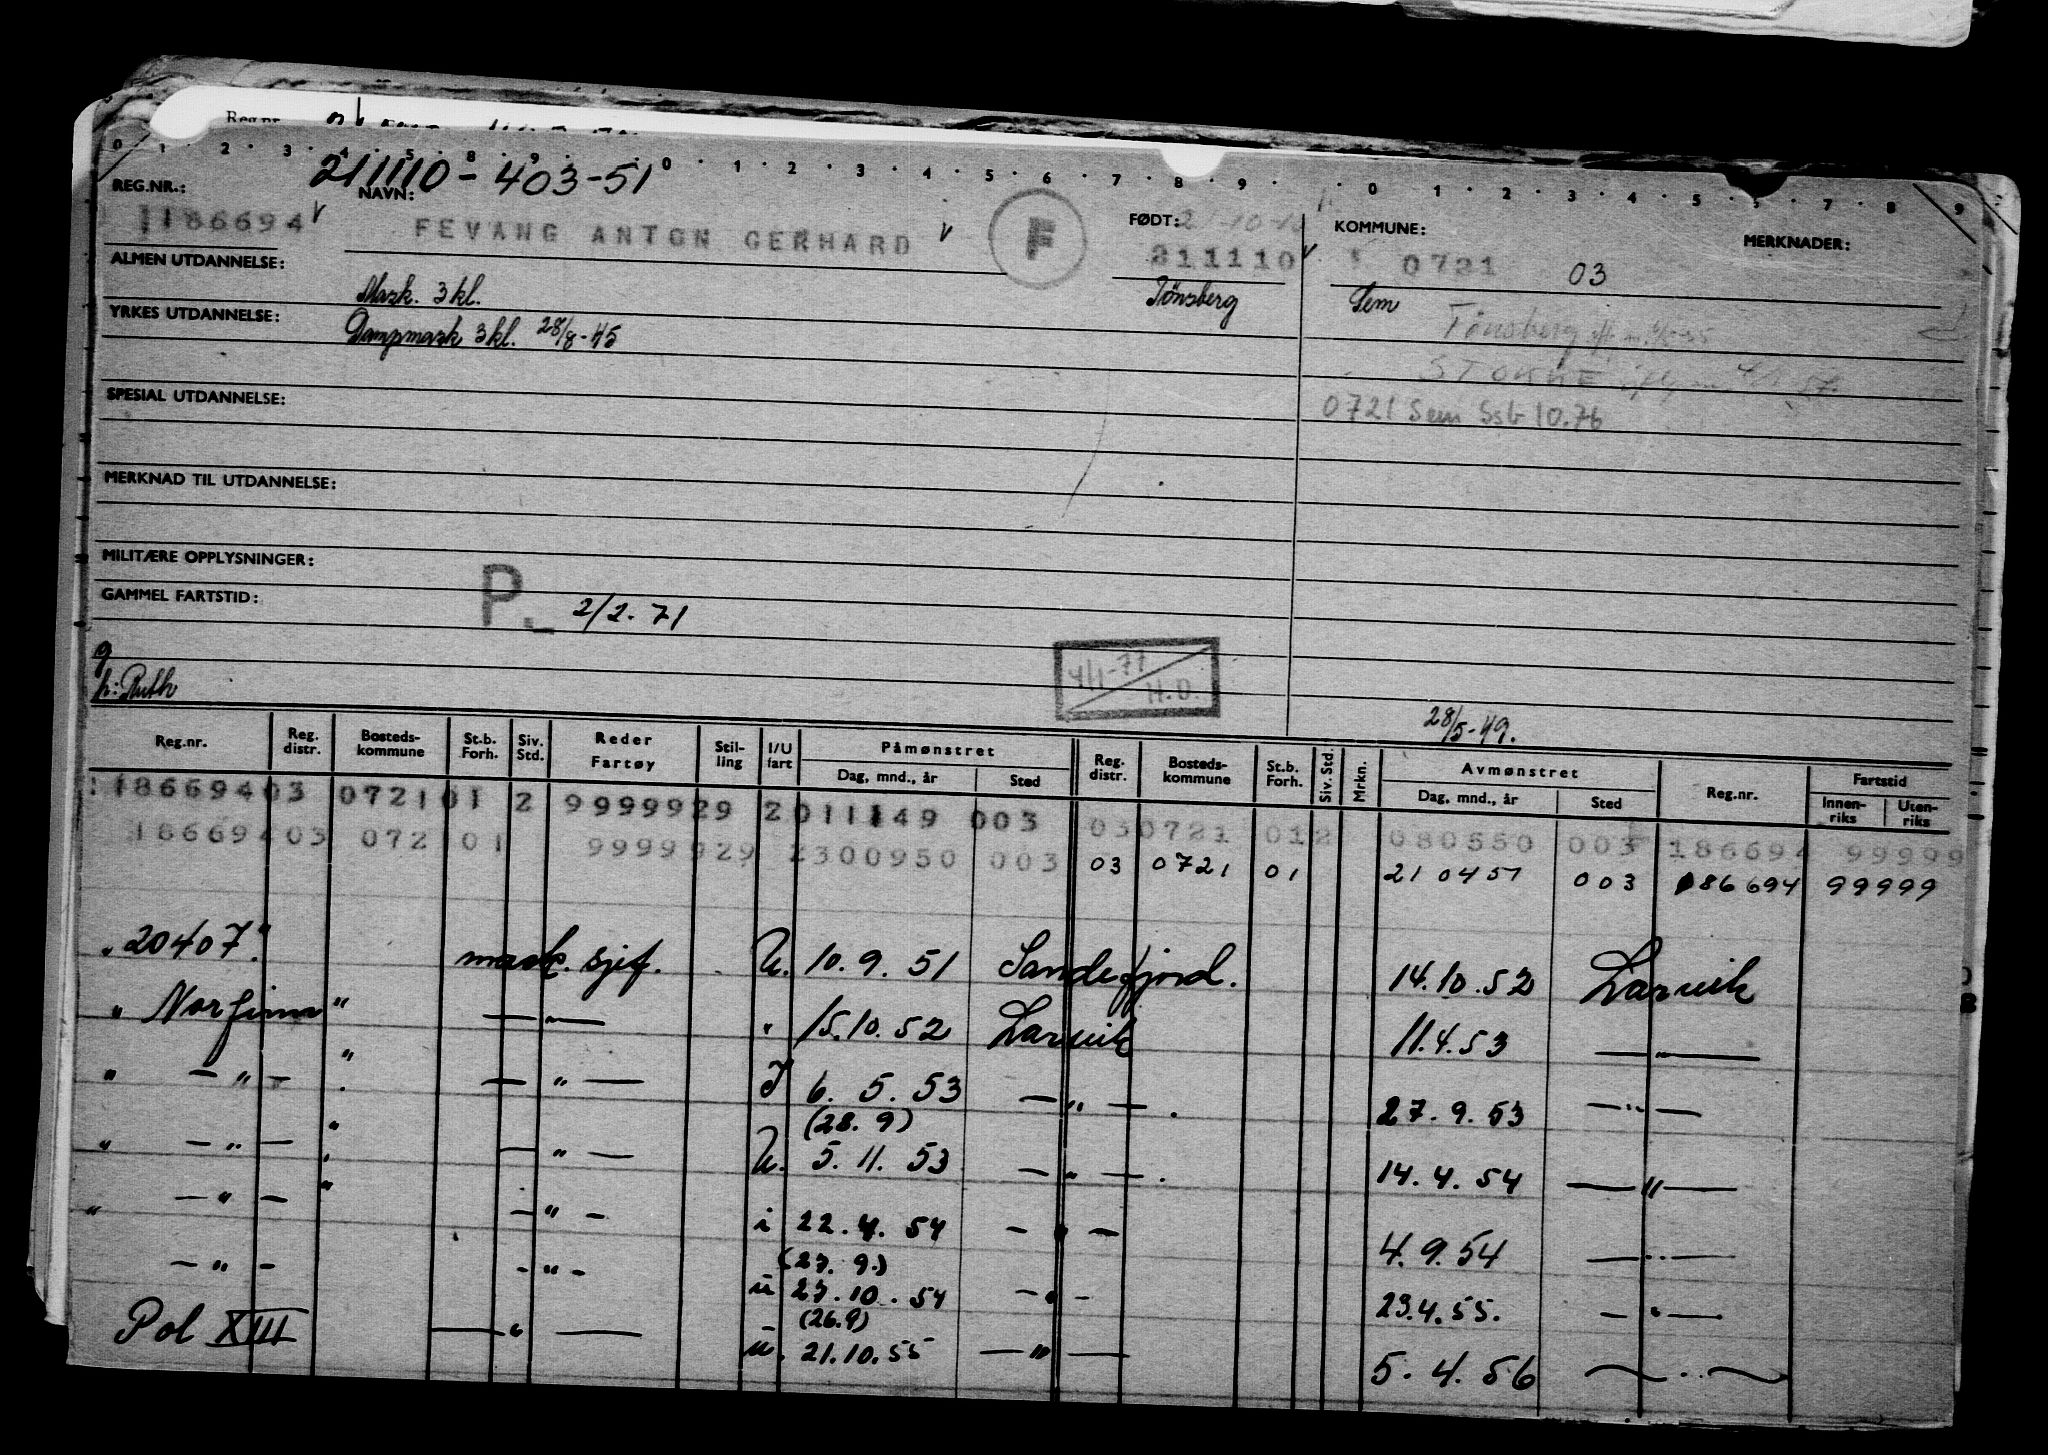 Reg.nr.
0 · 1 · 2 · 3 · 4 · 5 · 8 · 9 · 0 · 1 · 2 · 3 · 4 · 5 · 6 · 7 · 8 · 9 · 0 · 1 · 2 · 3 · 4 · 5 · 7 · 8 · 9
211110-403-51
REG.NR.: NAVN: FØDT: 21-10-10 KOMMUNE: MERKNADER:
186694 FEVANG ANTON GERHARD F 211110 0721 03
ALMEN UTDANNELSE: Mask. 3 kl. Tönsberg Sem
YRKES UTDANNELSE: Dampmask 3 kl. 28/8-45 Tönsberg
STOKKE
SPESIAL UTDANNELSE: 0721 Sem Ssb 10.76
MERKNAD TIL UTDANNELSE:
MILITÆRE OPPLYSNINGER:
GAMMEL FARTSTID: P. 2/2-71
g
h: Ruth 4/1-77 H.O.
28/5-49.
Reg.nr. Reg. distr. Bosteds-kommune St.b. Forh. Siv. Std. Reder Fartøy Stil-ling I/U fart Påmønstret Dag, mnd., år Sted Reg. distr. Bosteds-kommune St.b. Forh. Siv. Std. Mrkn. Avmønstret Dag, mnd., år Sted Reg.nr. Fartstid Innen-riks Uten-riks
186694 03 0721 01 2 9999929 2 011149 003 03 0721 01 2 080550 003 186694 99999
186694 03 0721 01 9999929 2 300950 003 03 0721 01 210451 003 186694 99999
"20407." mask. sjef. U. 10.9.51 Sandefjord. 14.10.52 Larvik
" Norfinn " — " — " 15.10.52 Larvik 11.4.53 — " —
" — " — " — " — I 6.5.53 — " — . 27.9.53 — " —
(28.9)
" — " — " — " — U. 5.11.53 — " — . 14.4.54 — " —
" — " — " — " — i 22.4.54 — " — 4.9.54 — " —
(27.9.)
— " — — " — u 27.10.54 — " — 23.4.55. — " —
(26.9)
Pol XIII — " — u. 21.10.55 — " — 5.4.56 — " —